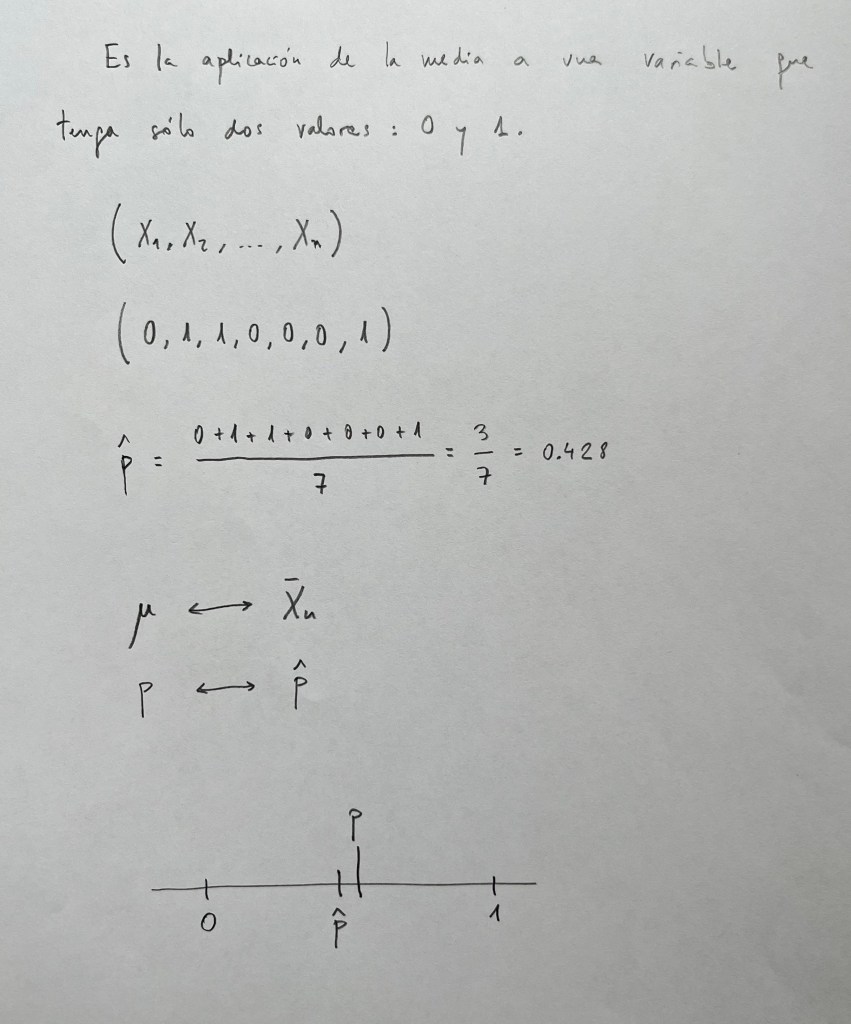 Es la aplicación de la media a una variable que
tenga sólo dos valores : 0 y 1.
(X₁, X₂, ..., Xₙ)
(0, 1, 1, 0, 0, 0, 1)
p̂ = (0+1+1+0+0+0+1)/7 = 3/7 = 0.428
μ ↔ X̄ₙ
p ↔ p̂
p
0 p̂ 1